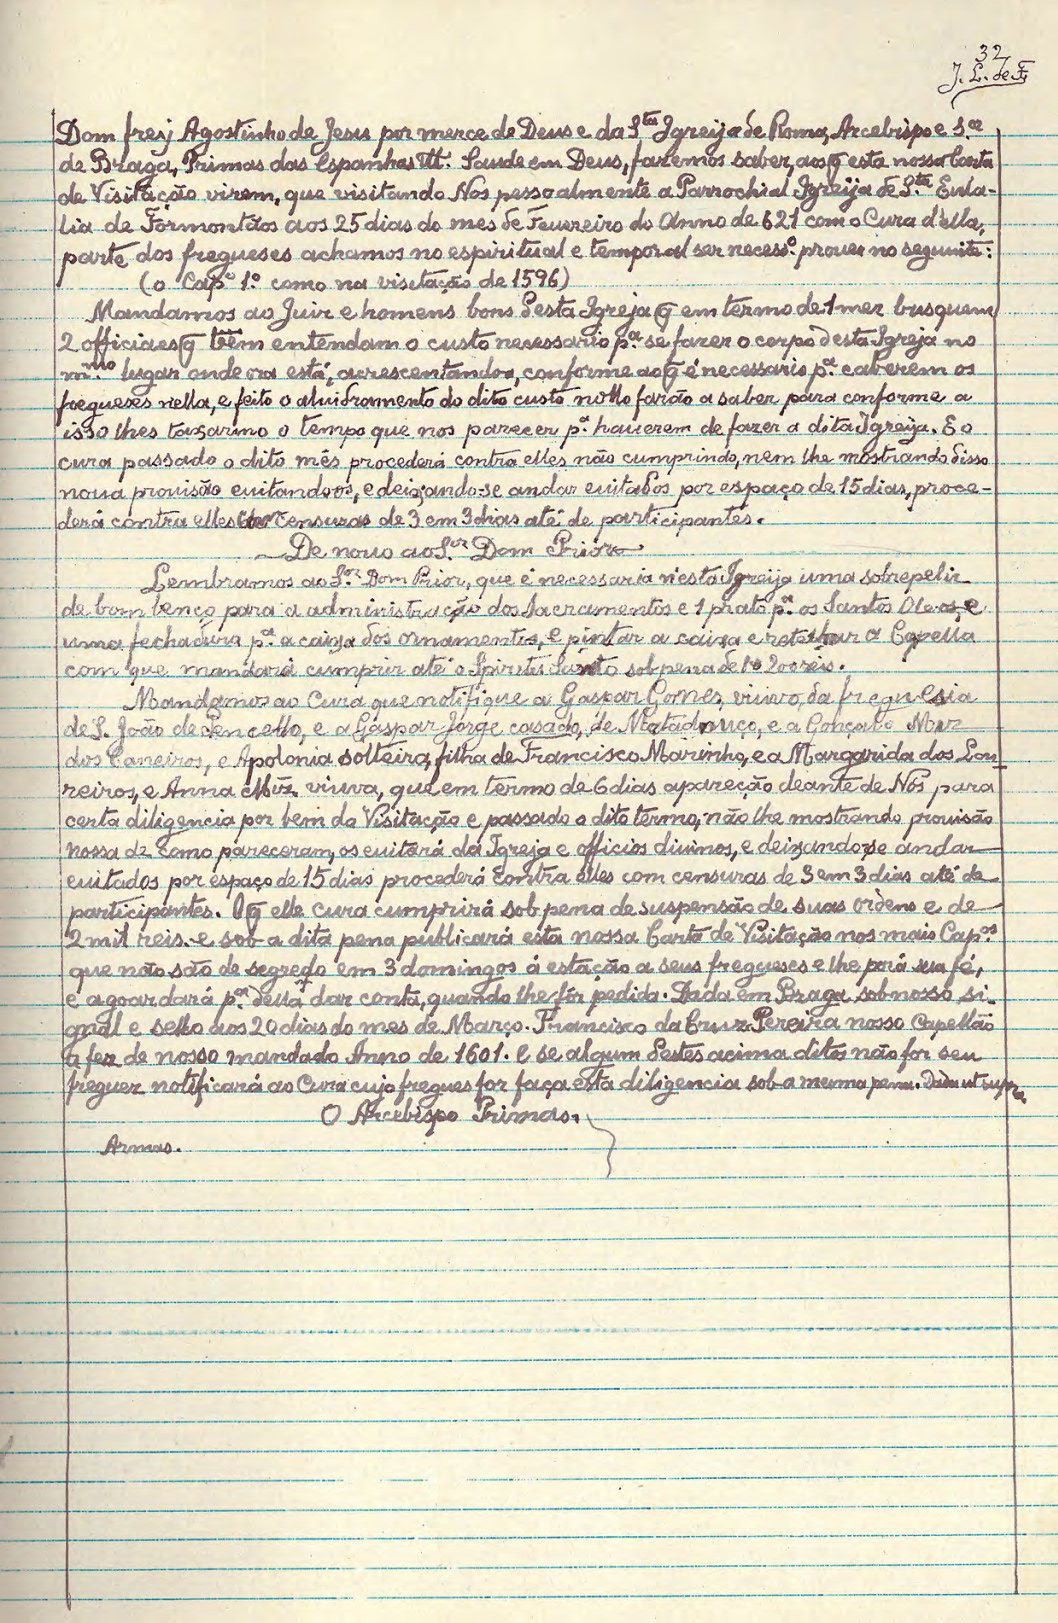 32
J. L. de F.
Dom frej Agostinho de Jesus por merce de Deus e da Sta Igreija de Roma, Arcebispo e S.or
de Braga, Primas das Espanhas Ttt. Saude em Deus, fazemos saber, aos q̃ esta nossa Carta
de Visitação virem, que visitando Nós pessoalmente a Parrochial Igreija de S.ta Eula-
lia de Tormontãos aos 25 dias do mes de Feuereiro do Anno de 621 com o Cura d'ella,
parte dos fregueses achamos no espiritual e temporal ser necess.o prouer no seguinte:
(o Cap.o 1.o como na visitação de 1596)
Mandamos ao Juiz e homens bons d'esta Igreja q̃ em termo de 1 mez busquem
2 officiaes q̃ bem entendam o custo necessario p.a se fazer o corpo d'esta Igreja no
m.mo lugar onde ora está, acrescentandos, conforme ao q̃ é necessario p.a caberem os
fregueses nella, e feito o aluidramento do dito custo nollo farão a saber para conforme a
isso lhes taxarmo o tempo que nos parecer p.a hauerem de fazer a dita Igreija. E o
cura passado o dito mês procederá contra elles não cumprindo, nem lhe mostrando d'isso
noua prouisão euitandoos, e deixando-se andar euitados por espaço de 15 dias, proce-
derá contra elles com censuras de 3 em 3 dias até de participantes.
De nouo ao S.or Dom Prior
Lembramos ao S.or Dom Prior, que é necessaria n'esta Igreija uma sobrepeliz
de bom lenço para a administração dos Sacramentos e 1 prato p.a os Santos Oleos, e
uma fechadura p.a a caixa dos ornamentos, e pintar a caixa e retelhar a Capella
com que mandará cumprir até o Spirito Santo sob pena de 1200 réis.
Mandamos ao Cura que notifique a Gaspar Gomes, viuvo, da freguesia
de S. João de Pencello, e a Gaspar Jorge casado, de Matadouço, e a Gonçalo Mez
dos Caneiros, e Apolonia solteira, filha de Francisco Marinho, e a Margarida dos Lou-
reiros, e Anna Mz̃. viuva, que em termo de 6 dias apareção deante de Nós para
certa diligencia por bem da Visitação e passado o dito termo, não lhe mostrando prouisão
nossa de como pareceram, os euitará da Igreja e officios diuinos, e deixando-se andar
euitados por espaço de 15 dias procederá contra elles com censuras de 3 em 3 dias até de
participantes. O q̃ elle cura cumprirá sob pena de suspensão de suas ordens e de
2 mil reis. e sob a dita pena publicará esta nossa Carta de Visitação nos mais Cap.os
que não são de segredo em 3 domingos á estação a seus fregueses e lhe porá sua fé,
e agoardará p.a della dar conta, quando lhe fôr pedida. Dada em Braga sob nosso si-
gnal e sello aos 20 dias do mes de Março. Francisco da Cruz Pereira nosso Capellão
a fez de nosso mandado Anno de 1601. E se algum d'estes acima ditos não for seu
freguez notificará ao Cura cujo fregues for faça esta diligencia sob a mesma pena. Dada ut supra
O Arcebispo Primas.
Armas.